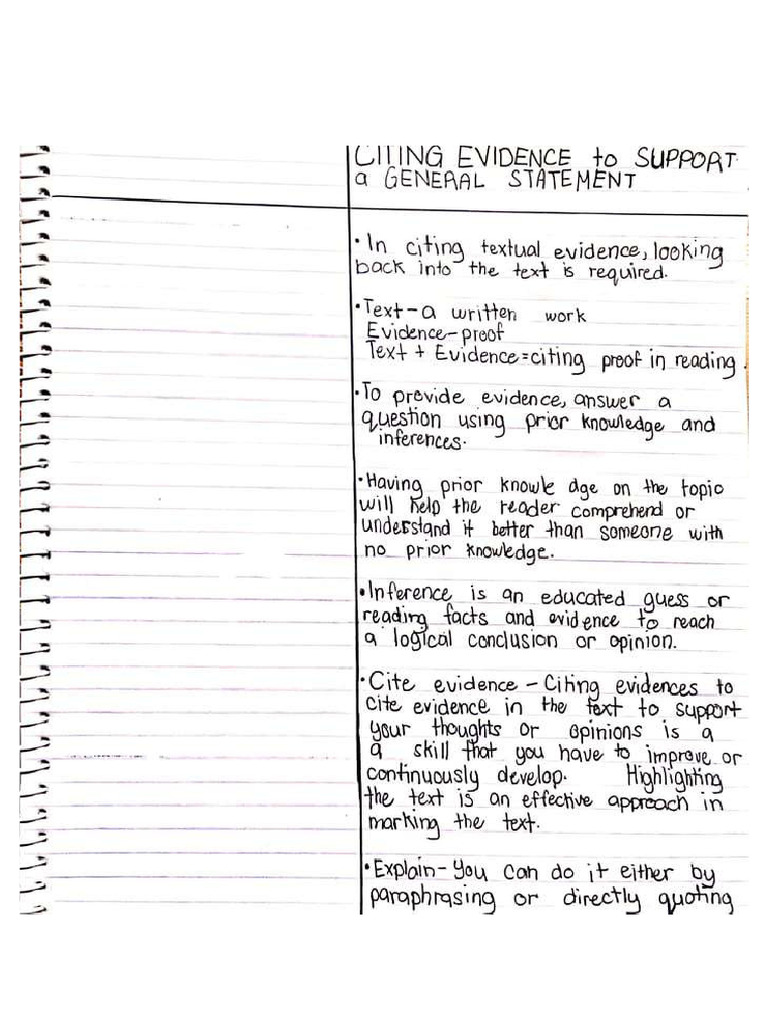 CITING EVIDENCE to SUPPORT
a GENERAL STATEMENT
• In citing textual evidence, looking
back into the text is required.
• Text - a written work
Evidence - proof
Text + Evidence = citing proof in reading.
• To provide evidence, answer a
question using prior knowledge and
inferences.
• Having prior knowle dge on the topic
will help the reader comprehend or
understand it better than someone with
no prior knowledge.
• Inference is an educated guess or
reading facts and evidence to reach
a logical conclusion or opinion.
• Cite evidence - Citing evidences to
cite evidence in the text to support
your thoughts or opinions is a
a skill that you have to improve or
continuously develop. Highlighting
the text is an effective approach in
marking the text.
• Explain - You can do it either by
paraphrasing or directly quoting